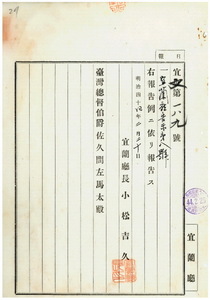 宜文第一八九號
一、宜蘭廳
右報告例ニ依リ報告ス
明治四十
宜蘭廳長 小松吉久
臺灣總督伯爵佐久間左馬太殿
宜蘭廳